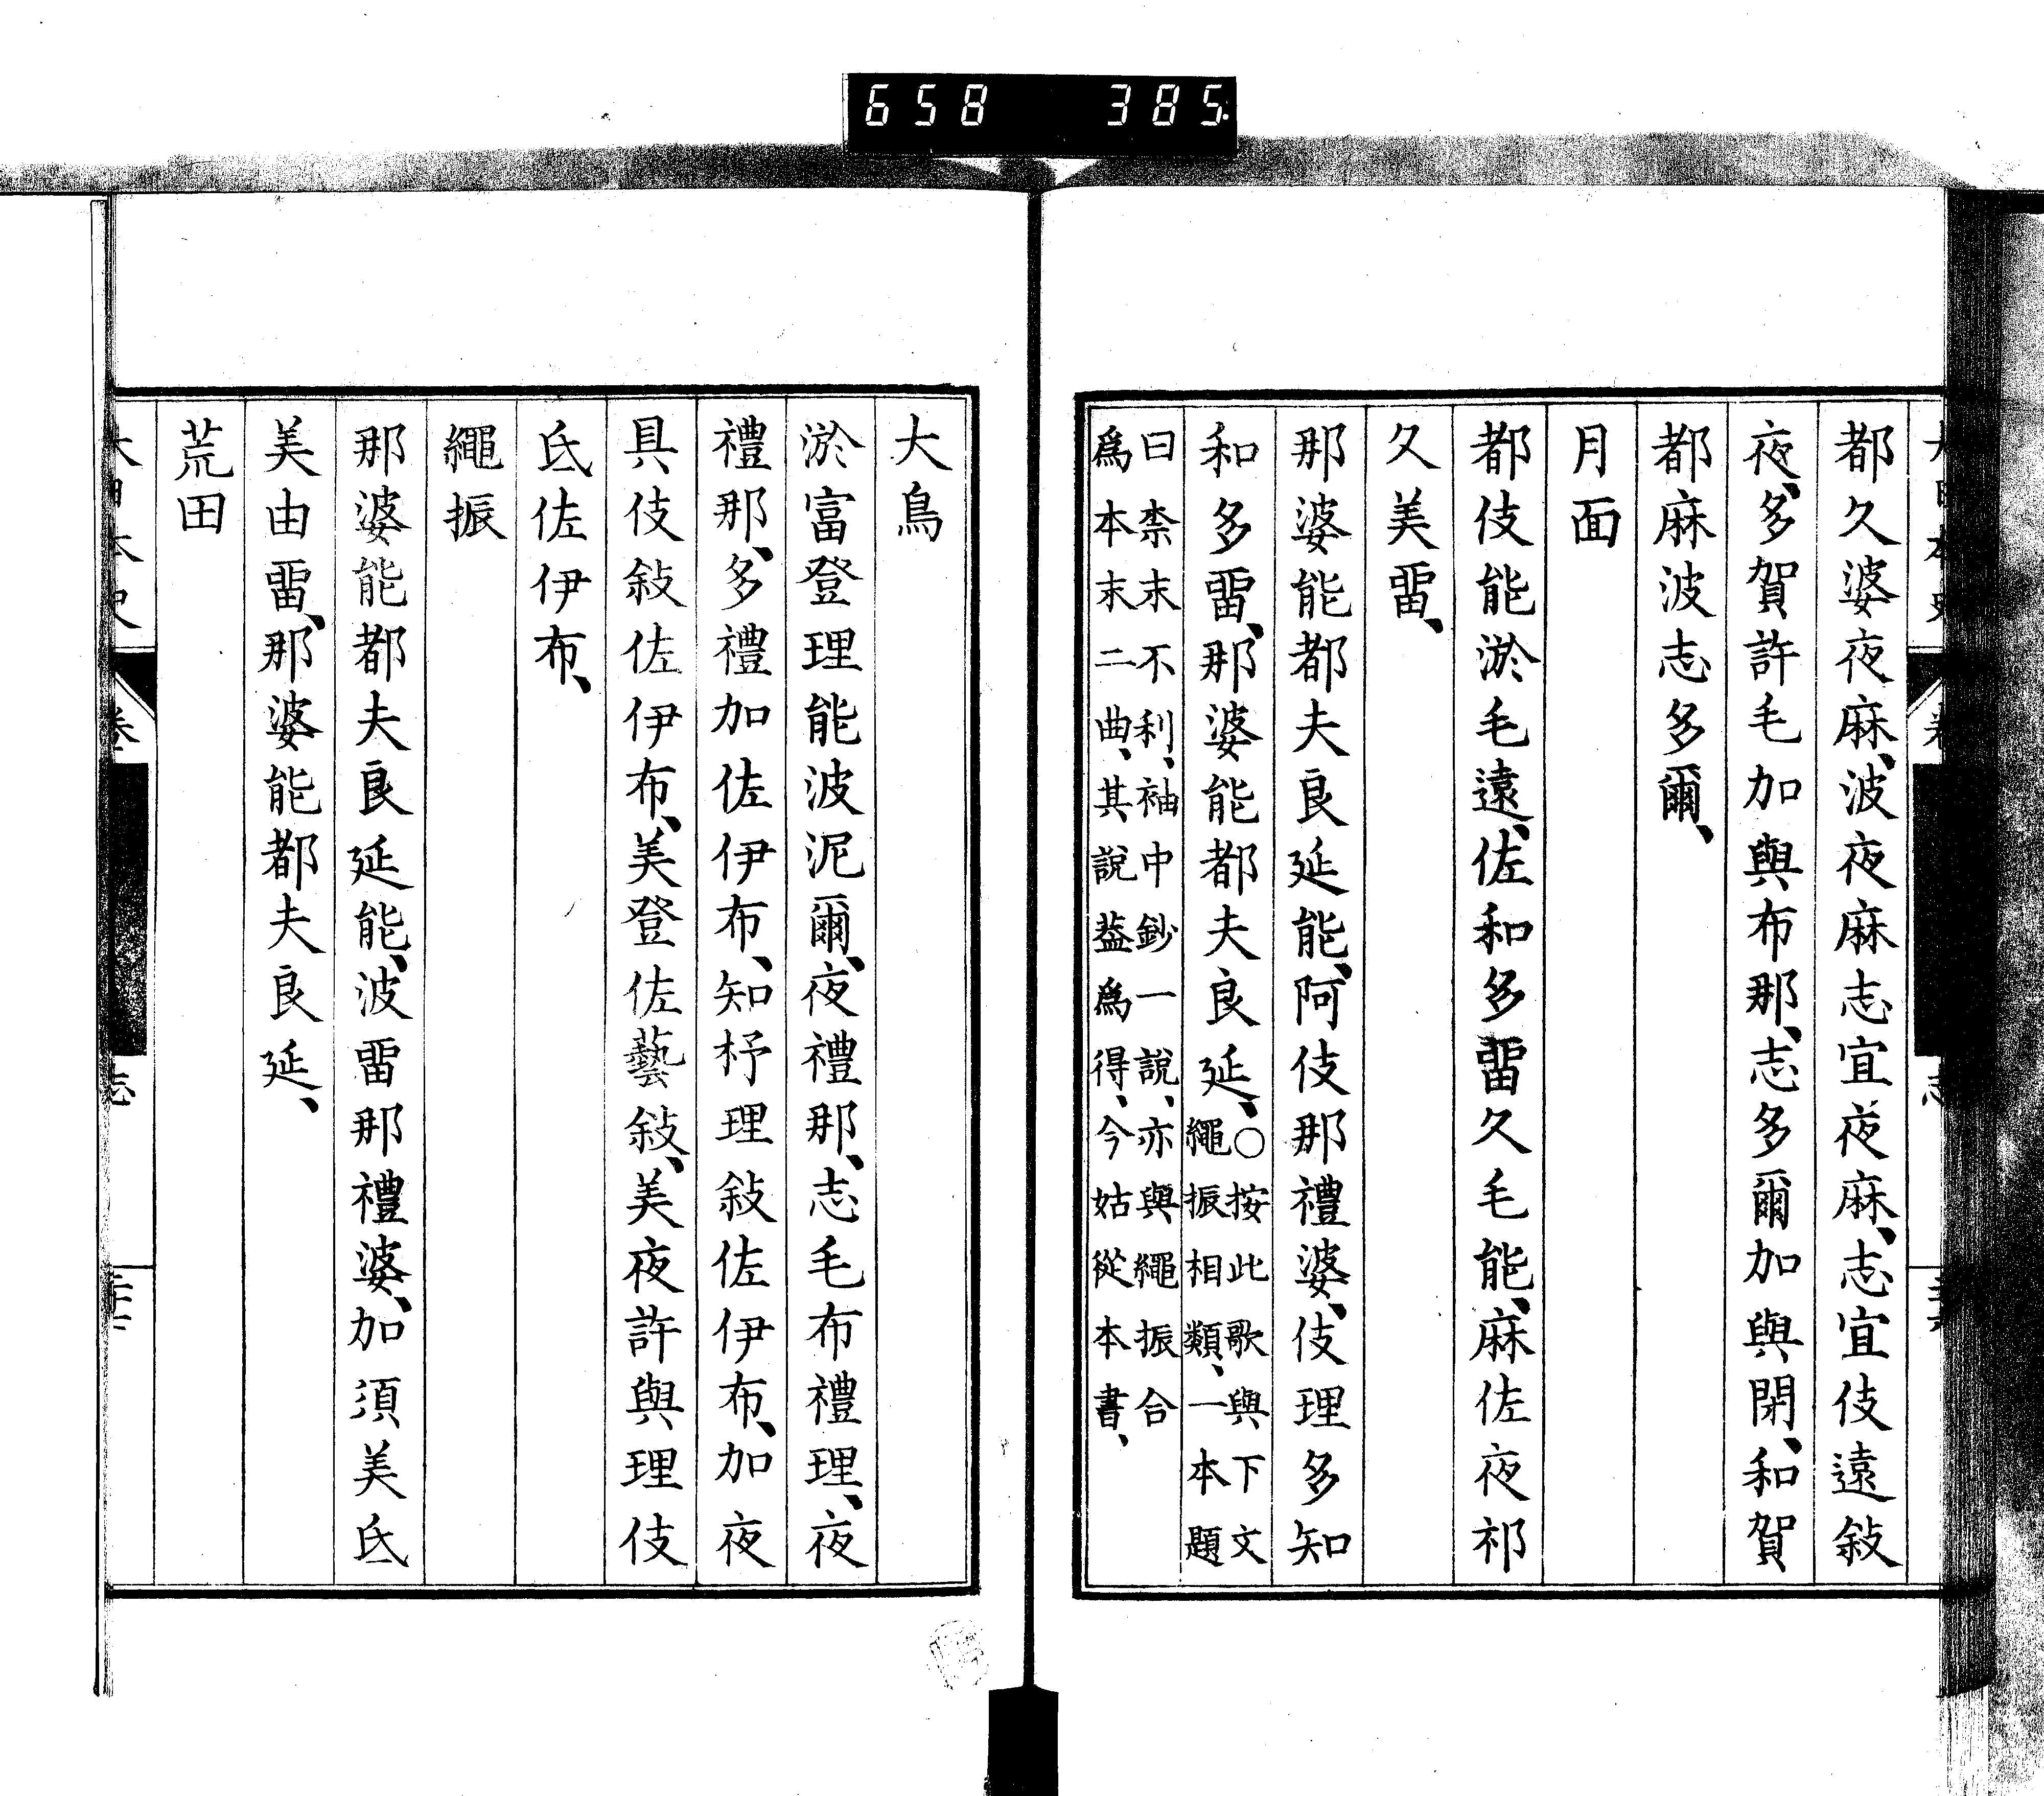 658 385
都久婆夜麻、波夜麻志宜夜麻、志宜伎遠敍
夜、多賀許毛加與布那、志多爾加與閇、和賀
都麻波志多爾、
月面
都伎能淤毛遠、佐和多畱久毛能、麻佐夜祁
久美畱、
那婆能都夫良延能、阿伎那禮婆、伎理多知
和多畱、那婆能都夫良延、○按此歌與下文
繩振相類、一本題
曰柰末不利、袖中鈔一說、亦與繩振合
爲本末二曲、其說葢爲得、今姑從本書、
大鳥
淤富登理能波泥爾、夜禮那、志毛布禮理、夜
禮那、多禮加佐伊布、知杼理敍佐伊布、加夜
具伎敍佐伊布、美登佐藝敍、美夜許與理伎
氐佐伊布、
繩振
那婆能都夫良延能、波畱那禮婆、加須美氐
美由畱、那婆能都夫良延、
荒田
大日本史 卷 志